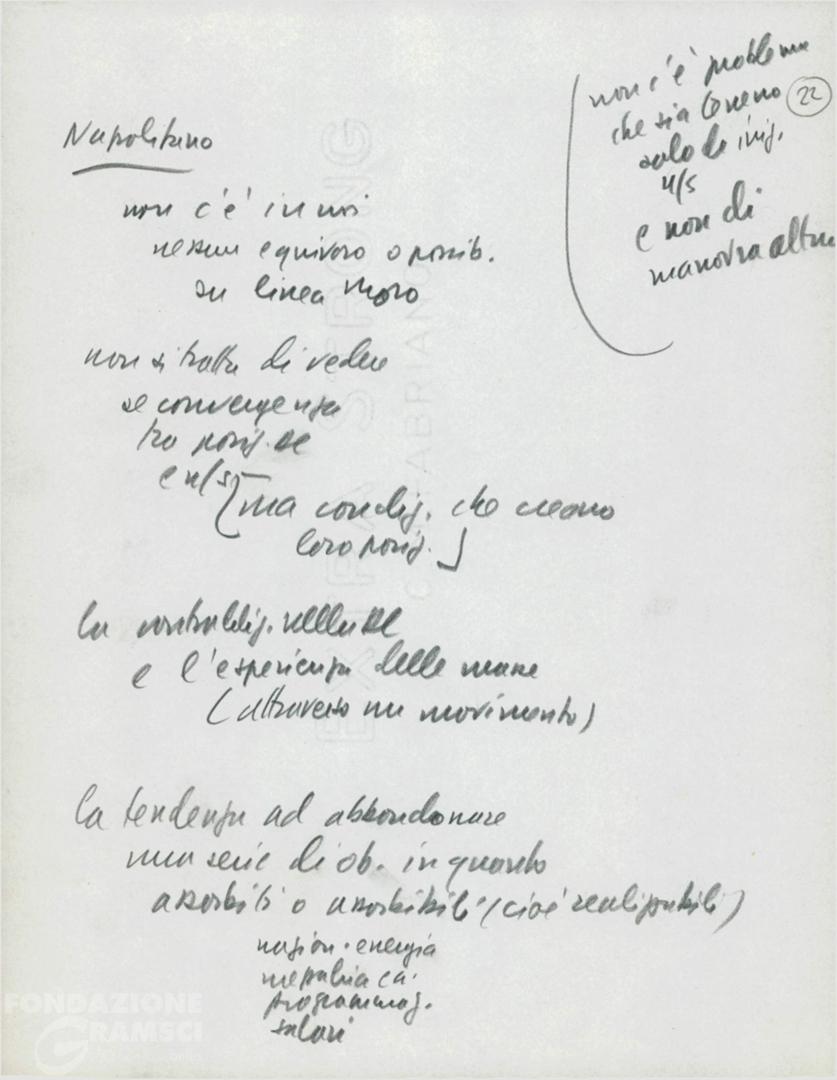 22
non c'è problema
che sia terreno
solo di iniz.
n/s
e non di
manovra altrui
Napolitano
non c'è in noi
nessun equivoco o possib.
su linea Moro
non si tratta di vedere
se convergenza
tra posiz.
e n/s
ma condiz. che creano
loro posiz.
la contraddiz.
e l'esperienza delle masse
(attraverso un movimento)
la tendenza ad abbandonare
una serie di ob. in quanto
assorbiti o assorbibili (cioè realizzabili)
nazion. energia
programmaz.
salari
EXTRA STRONG
FABRIANO
FONDAZIONE
GRAMSCI